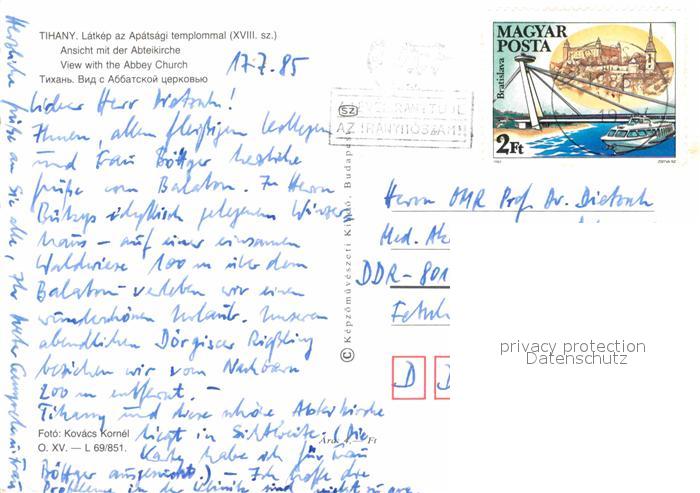 TIHANY. Látkép az Apátsági templommal (XVIII. sz.)
Ansicht mit der Abteikirche
View with the Abbey Church
Тихань. Вид с Аббатской церковью
17.7.85
Lieber Herr Dietzsch!
Ihnen, allen fleißigen Kollegen
und Frau Böttger herzliche
Grüße vom Balaton. In Herrn
idyllisch gelegenem Winzer
haus – auf einer einsamen
Waldwiese 100 m über dem
Balaton – verleben wir einen
wunderschönen Urlaub. Unseren
abendlichen Dörgicser Riesling
beziehen wir vom Nachbarn
200 m entfernt. –
Tihany und diese schöne Abteikirche
liegt in Sichtweite. (Die
Karte habe ich für Frau
Böttger ausgesucht.) – Ich hoffe die
Probleme in der Klinik sind nicht zu
Herzliche Grüße an Sie alle, Ihr
Fotó: Kovács Kornél
O. XV. — L 69/851.
Ára: 4,— Ft
© Képzőművészeti Kiadó, Budapest
SZ
AZ IRÁNYÍTÓSZÁM!
MAGYAR
POSTA
Bratislava
2Ft
Herrn OMR Prof. Dr. Dietzsch
Med.
DDR-801
D
privacy protection
Datenschutz